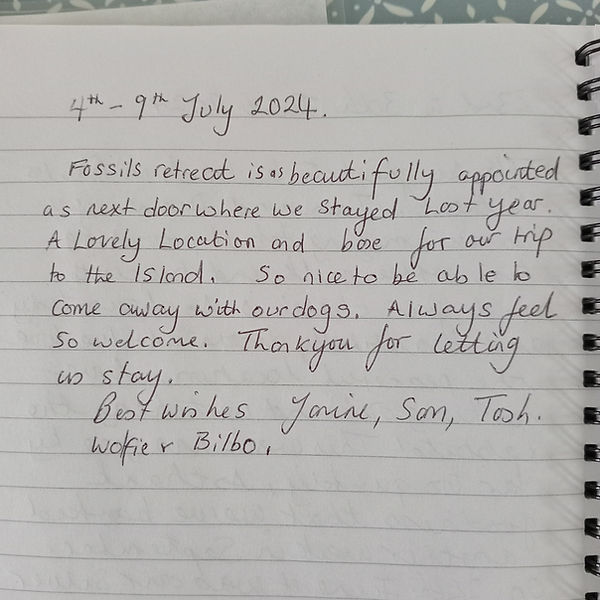 4th - 9th July 2024.
Fossils retreat is as beautifully appointed
as next door where we stayed Last year.
A Lovely Location and base for our trip
to the Island. So nice to be able to
come away with our dogs. Always feel
so welcome. Thankyou for letting
us stay.
Best wishes Janine, Sam, Tosh.
Wolfie & Bilbo.